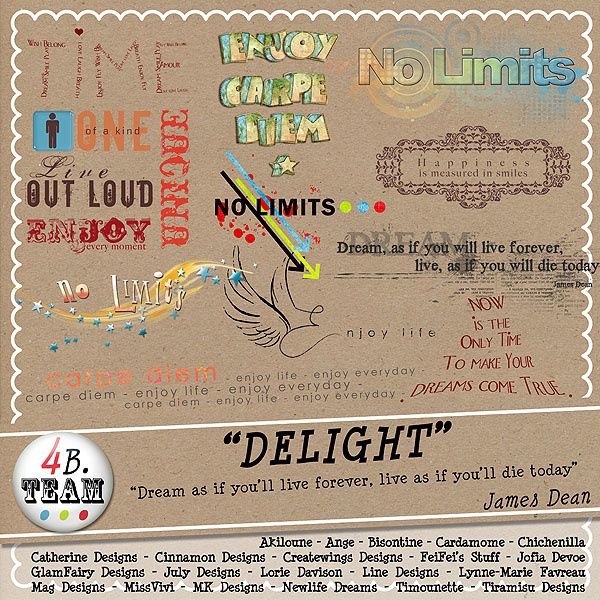 Wish Belong
ENJOY
CARPE
DIEM
No Limits
ONE
of a kind
Live
OUT LOUD
ENJOY
every moment
Happiness
is measured in smiles
NO LIMITS
DREAM
Dream, as if you will live forever,
live, as if you will die today
James Dean
no Limits
njoy life
NOW
is the
Only Time
To make Your
DREAMS COME TRUE.
carpe diem - enjoy life - enjoy everyday -
carpe diem - enjoy life - enjoy everyday -
carpe diem - enjoy life - enjoy everyday -
4B.
TEAM
“DELIGHT”
“Dream as if you'll live forever, live as if you'll die today”
James Dean
Akiloune - Ange - Bisontine - Cardamome - Chichenilla
Catherine Designs - Cinnamon Designs - Createwings Designs - FeiFei's Stuff - Jofia Devoe
GlamFairy Designs - July Designs - Lorie Davison - Line Designs - Lynne-Marie Favreau
Mag Designs - MissVivi - MK Designs - Newlife Dreams - Timounette - Tiramisu Designs